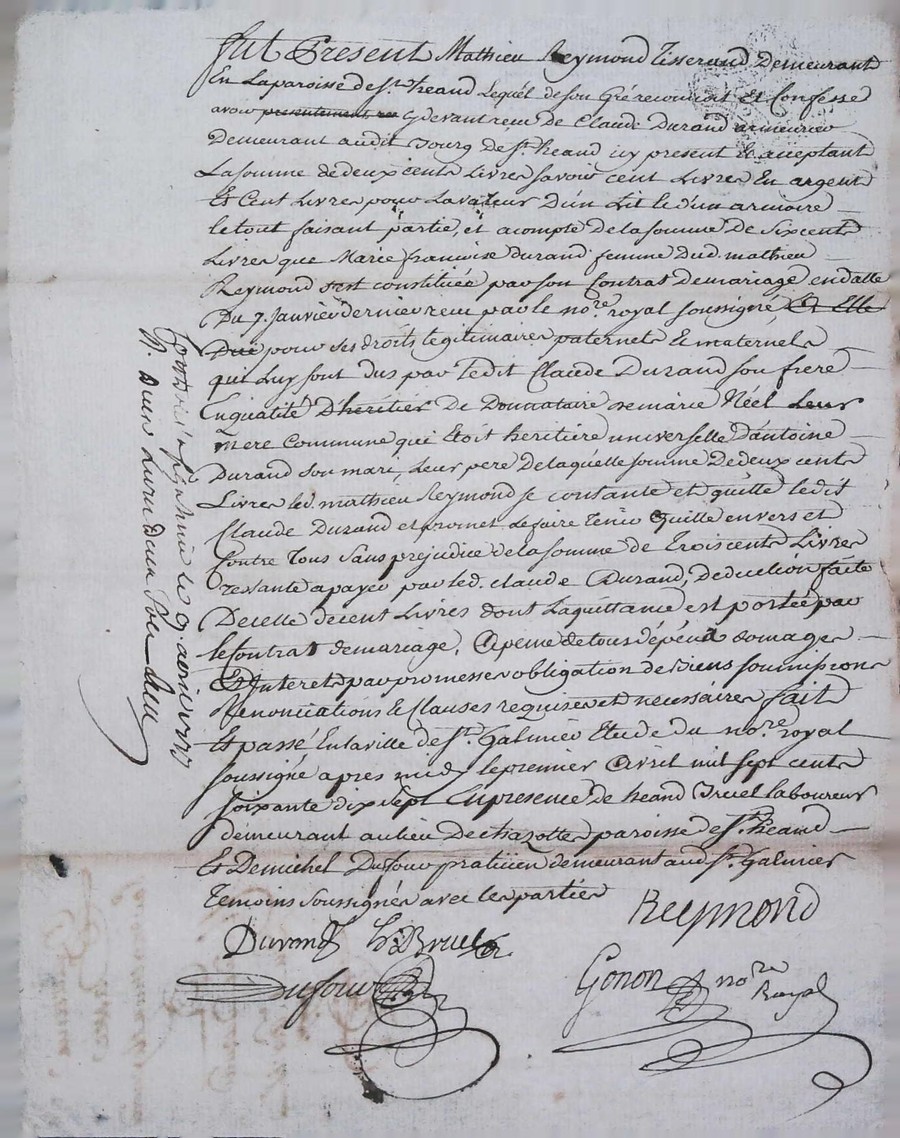 Fut Present Mathieu Reymond Tisserand Demeurant
En La paroisse de St. heand Lequel de son Gré reconnoit et Confesse
avoir presentement reçu Cydevant reçu de Claude Durand armeurier
Demeurant audit Bourg de St. heand icy present & acceptant
La somme de deux cents Livres savoir cent Livres En argent
Et Cent Livres pour La valeur D'un Lit & d'un armoire
le tout faisant partie, et acompte de la somme de Six cents
Livres que Marie francoise durand femme dud. mathieu
Reymond s'est constituée par son Contrat de mariage en datte
Du 7. Janvier dernier reçu par le nore. royal soussigné Et Elle
Due pour ses droits legitimaires paternels & maternels
qui Luy sont dus par Ledit Claude Durand son frere
En qualité D'héritier & Donnataire de marie Néel Leur
mere Commune qui Etoit heritiere universelle d'antoine
Durand son mari, Leur pere De laquelle somme De deux cents
Livres led. mathieu Reymond se contante et quitte ledit
Claude Durand et promet de faire tenir Quitte envers et
Contre Tous Sans prejudice de la somme de Trois cents Livres
restante a payer par led. claude Durand, Deduction faite
De celle de cent Livres dont La quittance est portée par
le Contrat de mariage, A peine de tous dépens domages
Et Interets par promesses obligation de Biens soumissions
Renonciations & Clauses requises et necessaires fait
Et passé En la ville de St. Galmier Etude du nore. royal
soussigné apres midy le premier Avril mil sept cents
soixante dix sept En presence de heand Bruel laboureur
demeurant au lieu De chazotte paroisse de St. heand
Et De michel Dufour praticien demeurant aud St. Galmier
Temoins soussignés avec les parties
Reymond
Durand h. Bruel
Dufour
Gonon nore
Royal
le 9. avril 1777